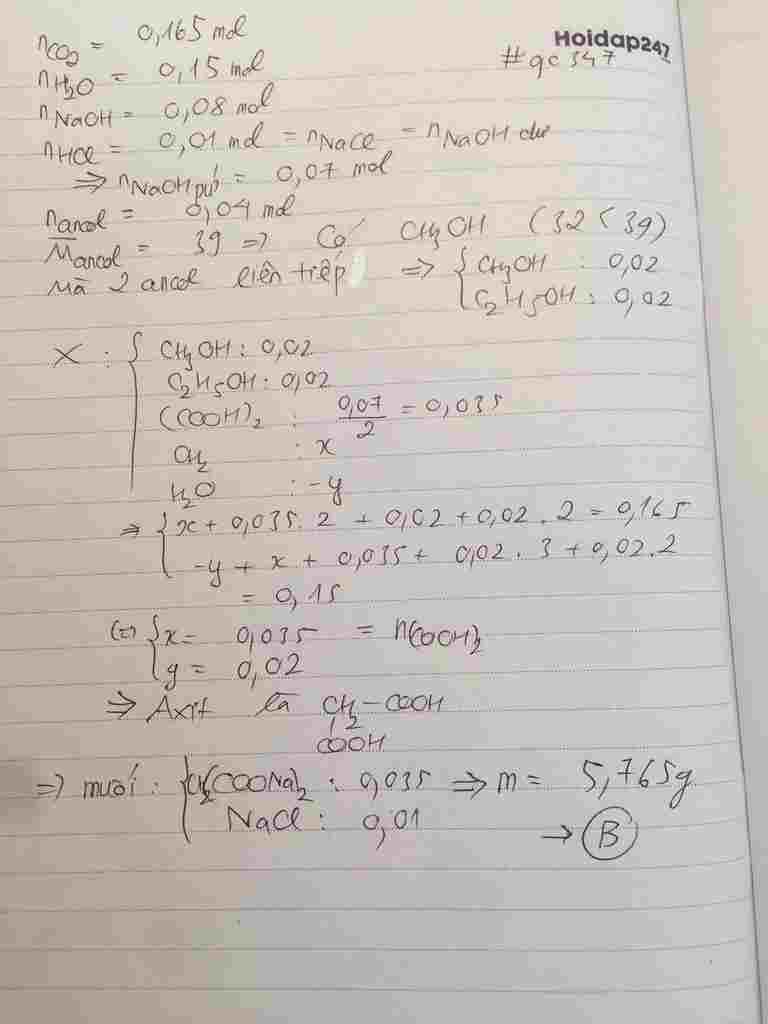 nCO2 = 0,165 mol
Hoidap247
#gc347
nH2O = 0,15 mol
nNaOH = 0,08 mol
nHCl = 0,01 mol = nNaCl = nNaOH dư
⇒ nNaOH pứ = 0,07 mol
nancol = 0,04 mol
M̅ancol = 39 ⇒ Có CH3OH (32 < 39)
Mà 2 ancol liên tiếp ⇒ { CH3OH : 0,02
C2H5OH : 0,02
X : { CH3OH : 0,02
C2H5OH : 0,02
(COOH)2 : 0,07/2 = 0,035
CH2 : x
H2O : -y
⇒ { x + 0,035. 2 + 0,02 + 0,02 . 2 = 0,165
-y + x + 0,035 + 0,02 . 3 + 0,02 . 2
= 0,15
(=) { x = 0,035 = n(COOH)2
y = 0,02
⇒ Axit là CH2 - COOH
COOH
=) muối : { CH2(COONa)2 : 0,035 ⇒ m = 5,765g
NaCl : 0,01 → B